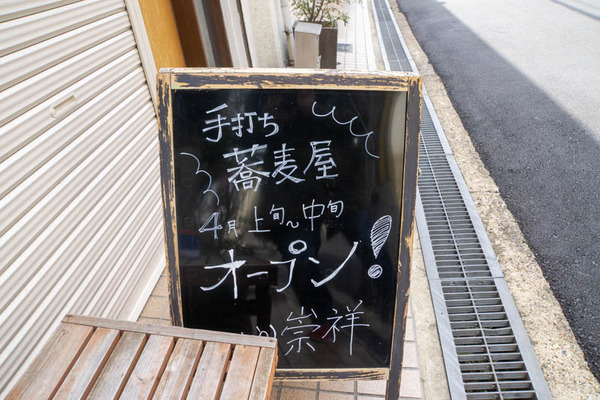 手打ち
蕎麦屋
4月上旬~中旬
オープン!
崇祥